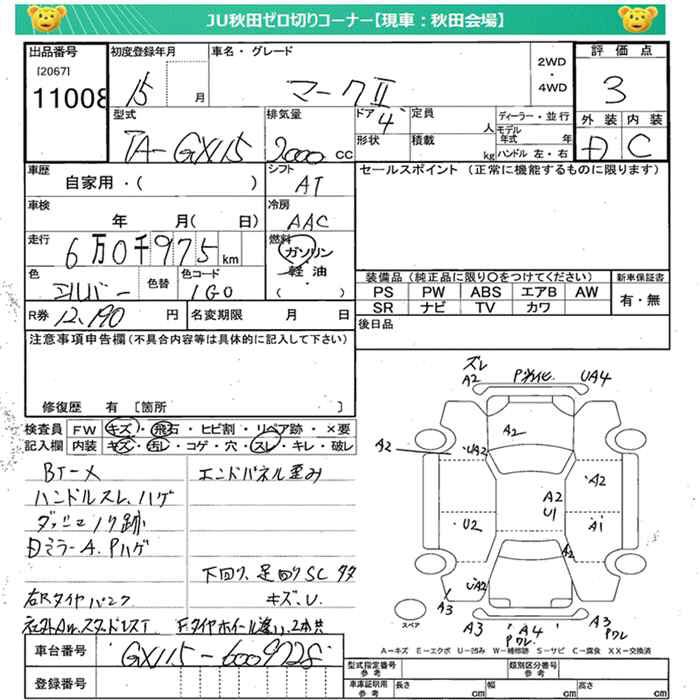 JU秋田ゼロ切りコーナー【現車：秋田会場】
出品番号
[2067]
11008
初度登録年月
15 月
車名・グレード
マークⅡ
2WD
・
4WD
評価点
3
外装 内装
D C
型式
TA-GX115
排気量
2000 cc
ドア
4
形状
定員
人
積載
kg
ディーラー・並行
モデル年式 年
ハンドル 左・右
車歴
自家用・( )
シフト
AT
セールスポイント (正常に機能するものに限ります)
車検
年 月( 日)
冷房
AAC
走行
6万0千975km
燃料
ガソリン
・
軽油
( )
色
シルバー
色替
色コード
1G0
装備品 (純正品に限り○をつけてください)
PS PW ABS エアB AW
SR ナビ TV カワ
新車保証書
有・無
R券 12,190 円
名変期限 月 日
後日品
注意事項申告欄(不具合内容等は具体的に記入して下さい)
修復歴 有 [箇所 ]
検査員 FW キズ・飛石・ヒビ割・リペア跡・×要
記入欄 内装 キズ・汚レ・コゲ・穴・スレ・キレ・破レ
BT-X
ハンドルスレ、ハゲ
ダッシュノリ跡
DミラーA.Pハゲ
右Rタイヤパンク
エンドパネル歪み
下回り、足回りSC タタ
キズ、U.
ズレ
A2
P劣化.
UA4
A2
A2
UA2
A2
A2
U1
U2
A1
A2
UA2
A3
A3
A4
Pワレ
A3
Pワレ
スペア
A=キズ E=エクボ U=凹み W=補修跡 S=サビ C=腐食 XX=交換済
車台番号
GX115-6009728
登録番号
型式指定番号
参考
類別区分番号
参考
車庫証明用
参考
長さ cm
幅 cm
高さ cm